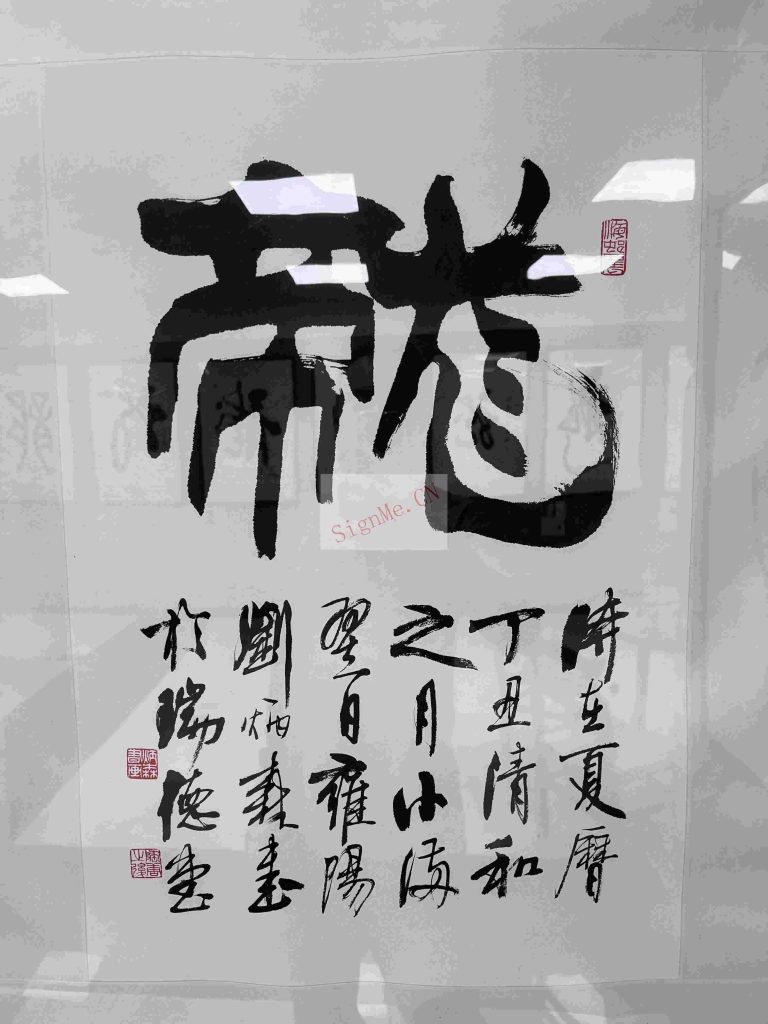 龍
時在夏曆
丁丑清和
之月小滿
翌日雍陽
劉炳森書
於瑞德堂
SignMe.CN